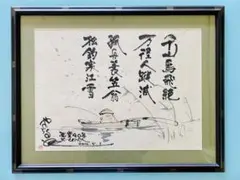 千山鳥飛絶
万徑人蹤滅
孤舟蓑笠翁
独釣寒江雪